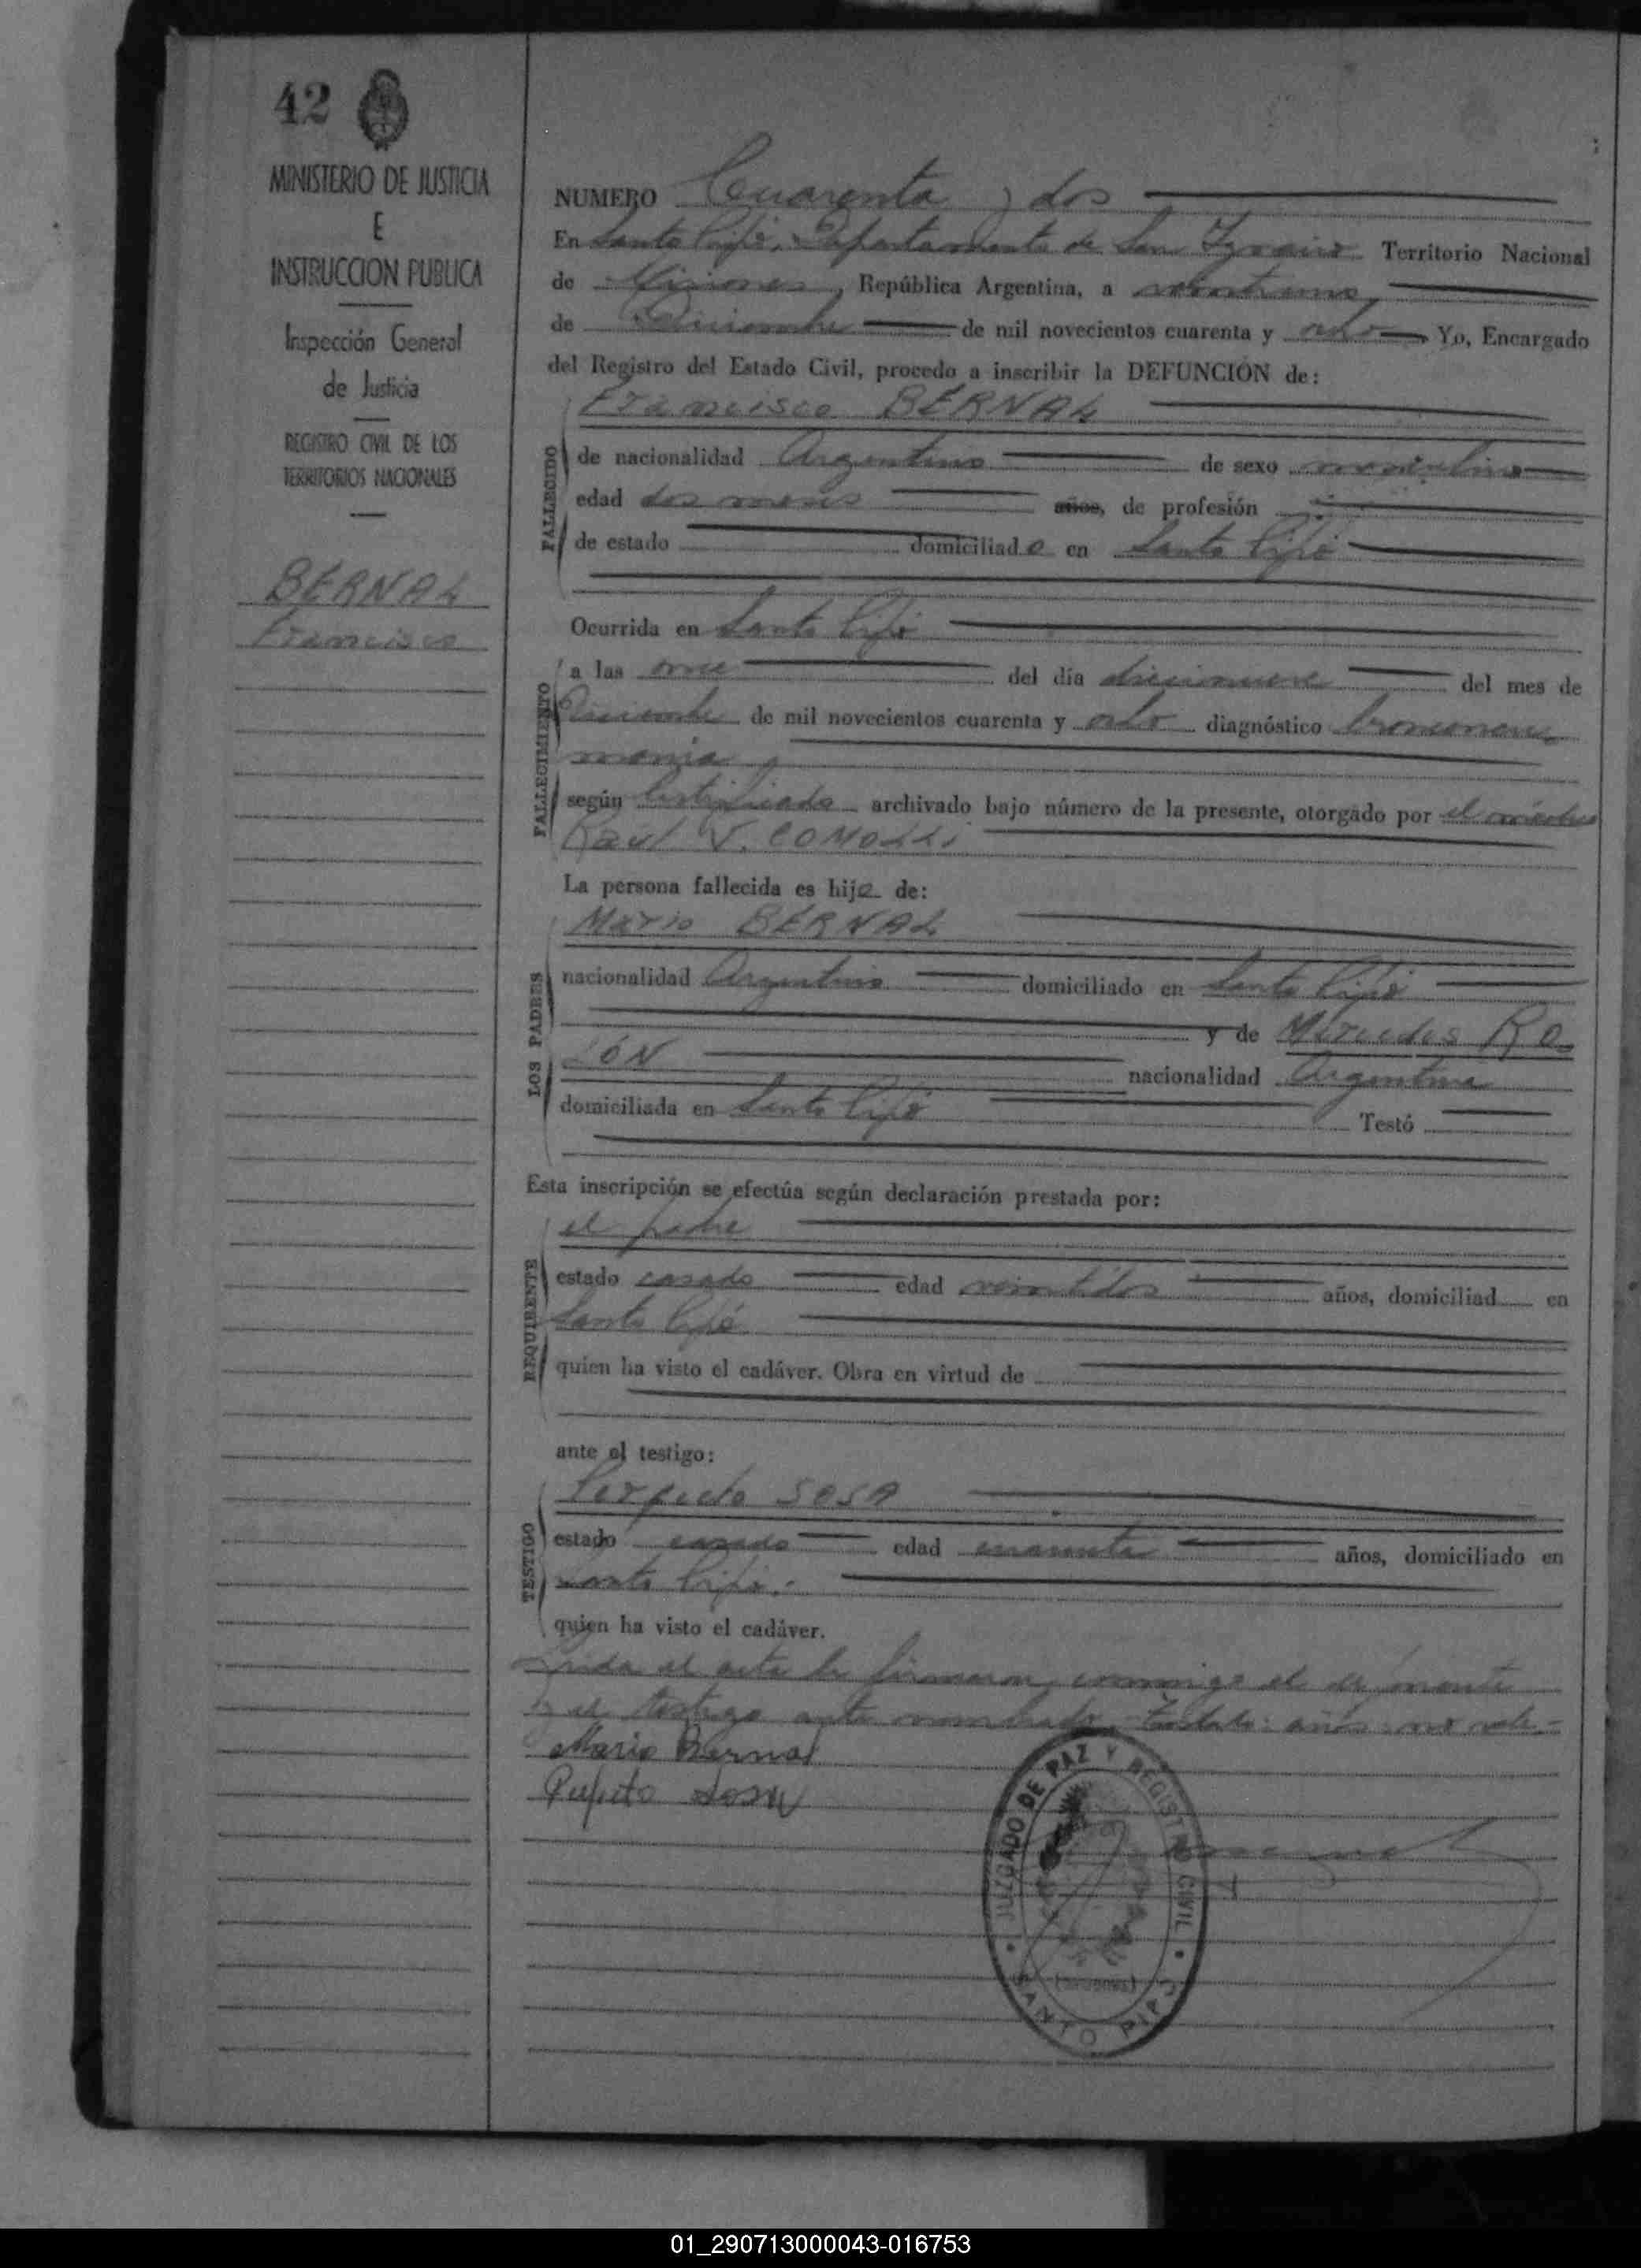 42
MINISTERIO DE JUSTICIA
E
INSTRUCCION PUBLICA
Inspección General
de Justicia
REGISTRO CIVIL DE LOS
TERRITORIOS NACIONALES
BERNAL
Francisco
NUMERO Cuarenta y dos
En Santo Pipó, Departamento de San Ignacio Territorio Nacional
de Misiones, República Argentina, a veintiuno
de Diciembre de mil novecientos cuarenta y ocho Yo, Encargado
del Registro del Estado Civil, procedo a inscribir la DEFUNCIÓN de:
Francisco BERNAL
FALLECIDO
de nacionalidad Argentino de sexo masculino
edad dos meses años, de profesión
de estado domiciliado en Santo Pipó
Ocurrida en Santo Pipó
FALLECIMIENTO
a las once del día diecinueve del mes de
Diciembre de mil novecientos cuarenta y ocho diagnóstico bronconeu-
monia
según certificado archivado bajo número de la presente, otorgado por el médico
Raul V. COMOLLI
La persona fallecida es hijo de:
LOS PADRES
Mario BERNAL
nacionalidad Argentino domiciliado en Santo Pipó
y de Mercedes RO-
LÓN nacionalidad Argentina
domiciliada en Santo Pipó Testó
Esta inscripción se efectúa según declaración prestada por:
REQUIRENTE
el padre
estado casado edad veintidos años, domiciliad en
Santo Pipó
quien ha visto el cadáver. Obra en virtud de
ante el testigo:
TESTIGO
Perfecto SOSA
estado casado edad cuarenta años, domiciliado en
Santo Pipó.
quien ha visto el cadáver.
Leida el acta la firmaron conmigo el
y el testigo ante nombrado. Testado: años: no vale-
Mario Bernal
Perfecto Sosa
JUZGADO DE PAZ Y REGISTRO CIVIL
SANTO PIPÓ
(MISIONES)
01_290713000043-016753